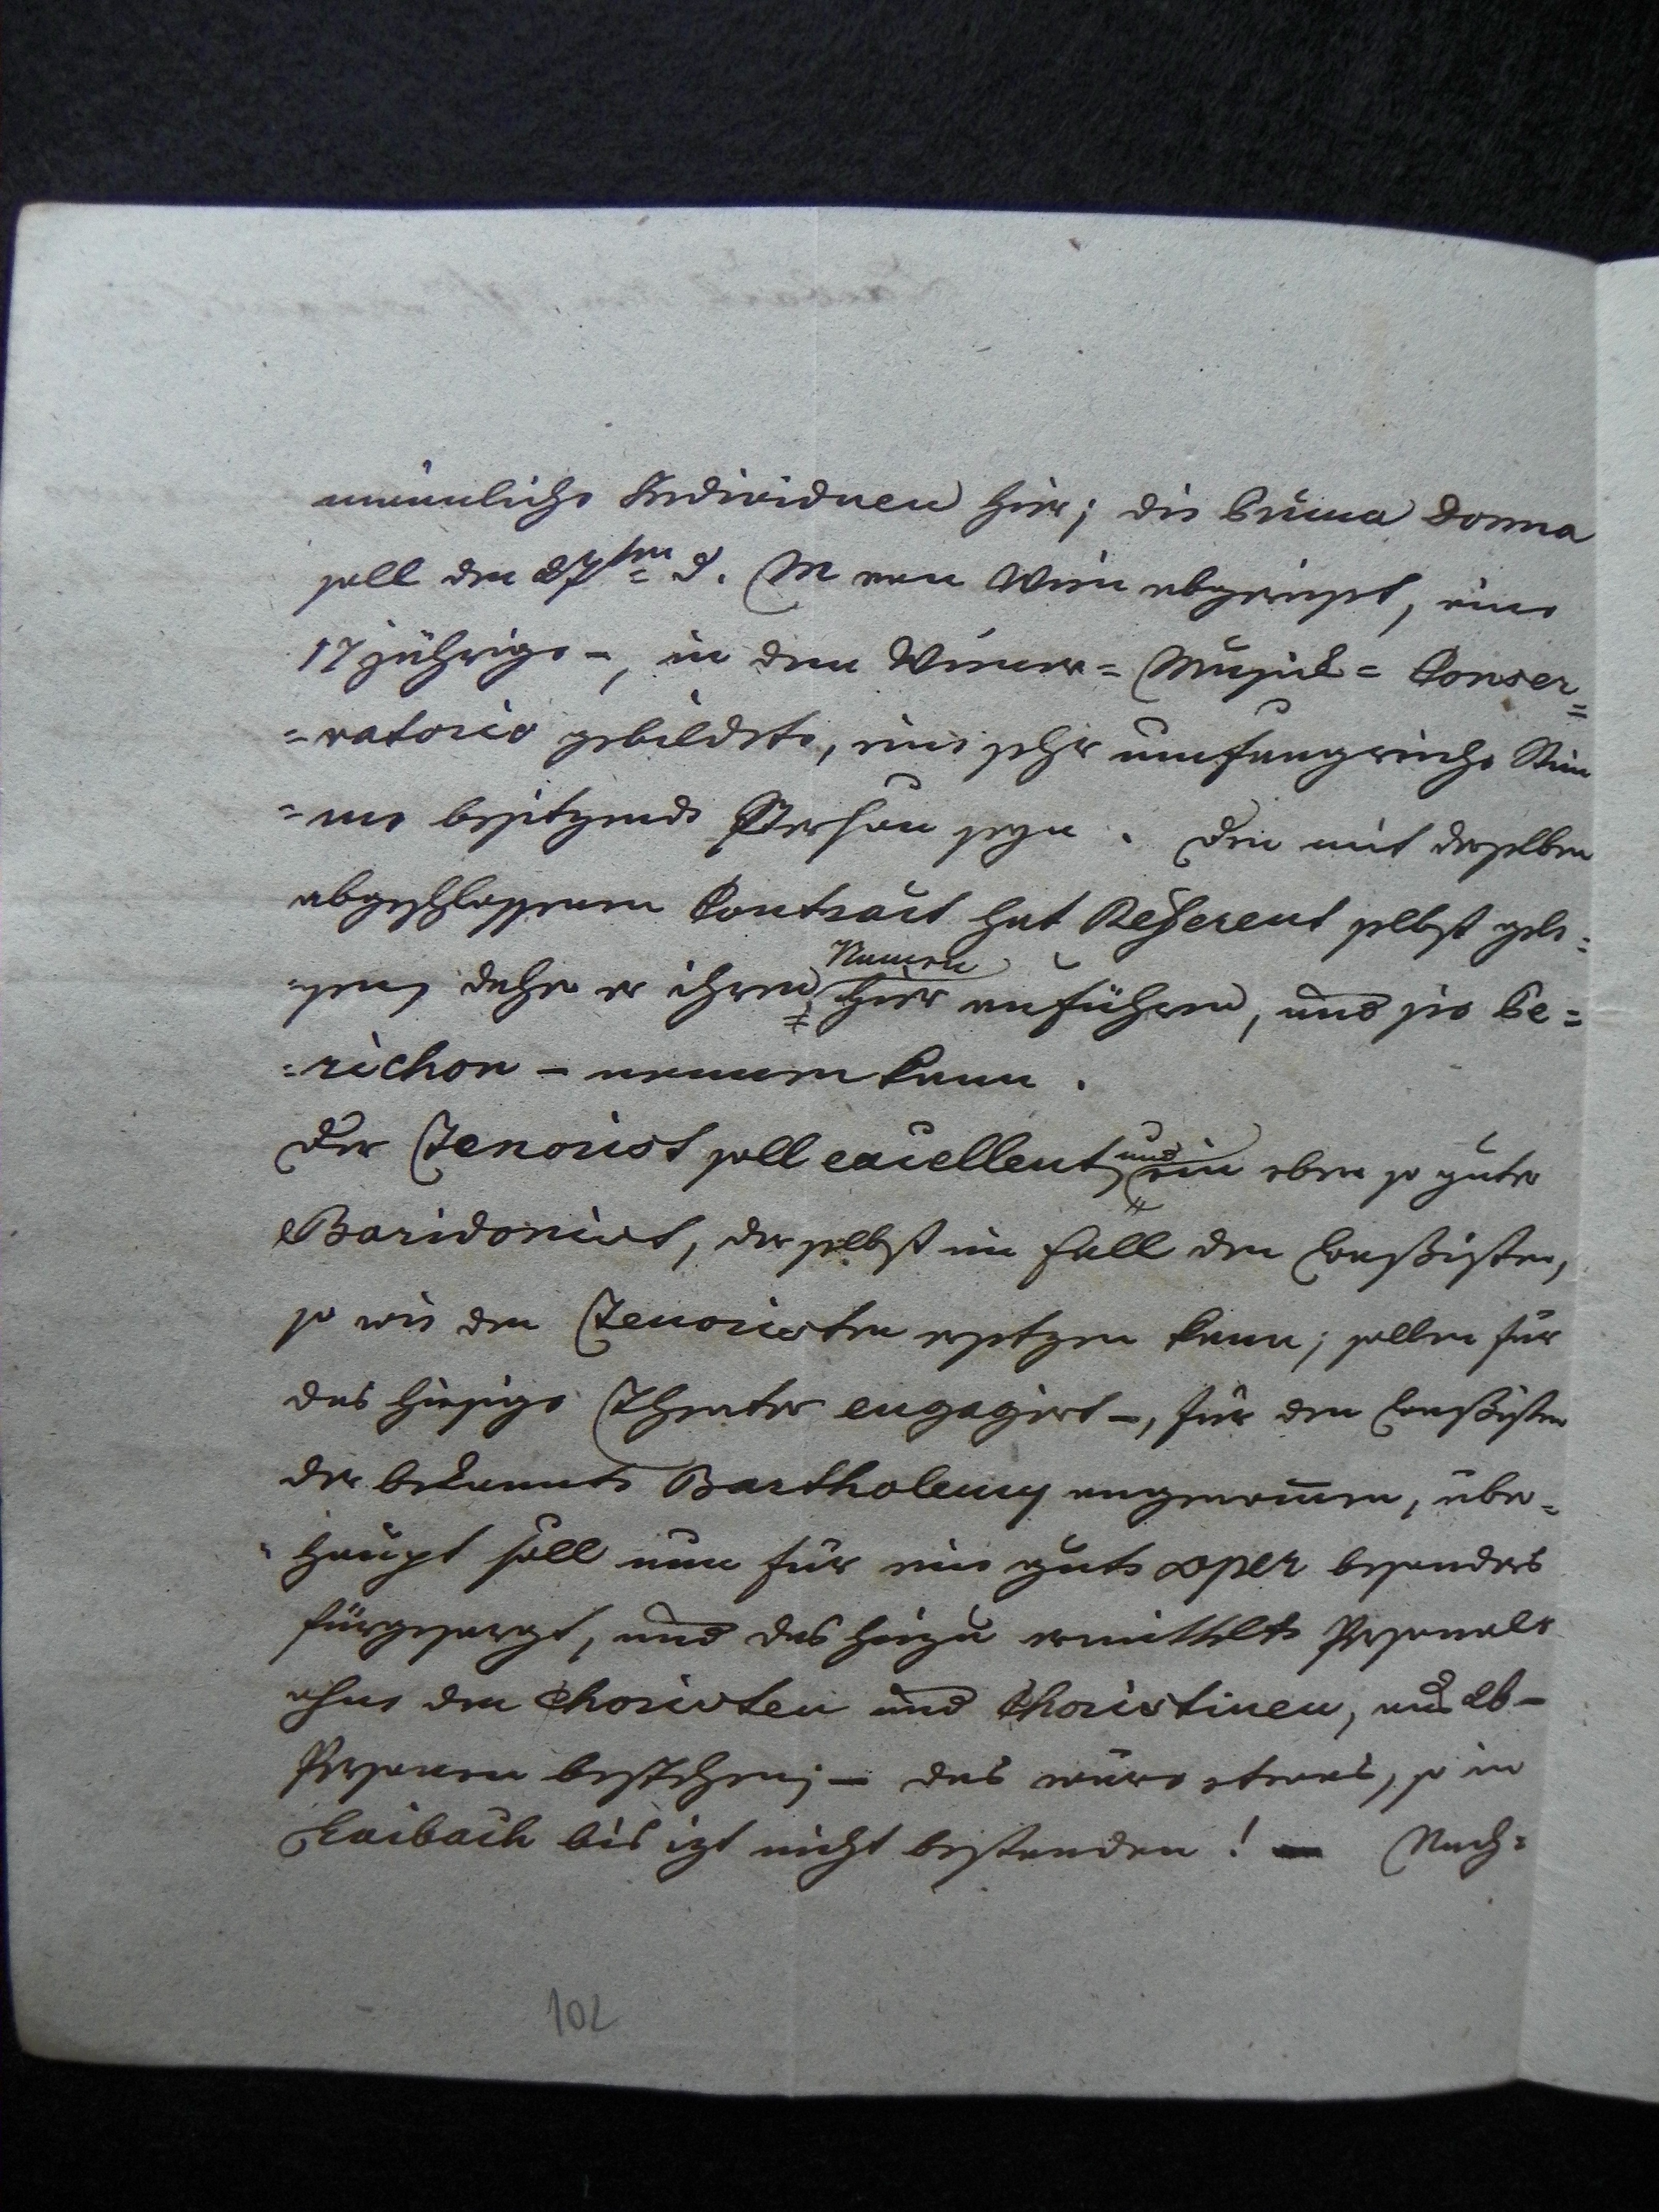 männliche Individuen hier; die Prima Donna
soll den 27ten d. M von Wien abgereist, eine
17 jährige –, in dem Wiener= Musick= Conser=
=vatorio gebildete, eine sehr umfangreiche Stim
=me besitzende Person seyn. Den mit derselben
abgeschlossenen Contract hat Referent selbst gele=
=sen, daher er ihren Namen hier anführen, und sie Pe=
=richon – nennen kann.
Der Tenorist soll excellent, und ein eben so guter
Baridonist, der selbst im Fall den Bassisten,
so wie den Tenoristen ersetzen kann; sollen für
das hiesige Theater engagirt –, für den Bassisten
der bekannte Bartholemy angenommen, über=
=haupt soll nun für eine gute Oper besonders
fürgesorgt, und das hiezu ermittelte Personale
ohne den Choristen und Choristinen, aus
Personen bestehen; – das wäre etwas, so in
Laibach bis izt nicht bestanden! – Nach=
102